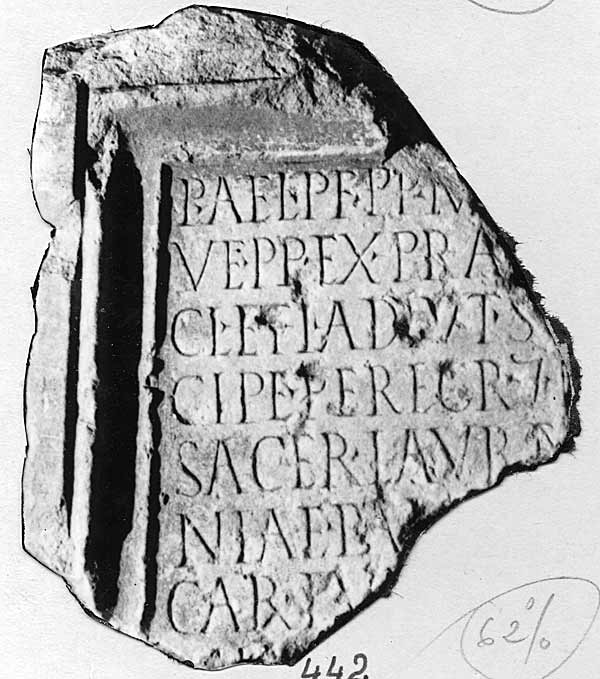 P·AEL·P·F·PP·M
VE·PP·EX·PRA
CL·LEG·I·ADIV·T·S
CIPE·PEREGR·
SACER·LAVR·
NIAE·E·
CAR·
442
62%